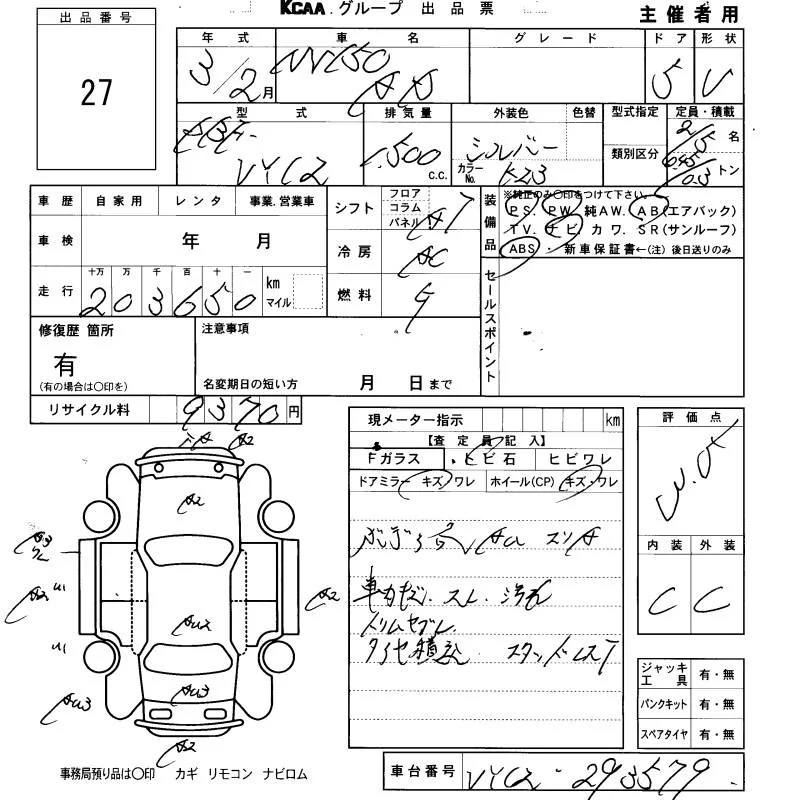 KCAA.グループ 出品票
主催者用
出品番号
27
年式 車名 グレード ドア 形状
3/2月 NV150 AD 5 V
型式 排気量 外装色 色替 型式指定 定員・積載
DBF- 1,500 シルバー 2/5 名
VYC12 c.c. カラーNo. K23 類別区分 0.45/0.3 トン
車歴 自家用 レンタ 事業.営業車
シフト フロア コラム パネル A7
車検 年 月
冷房 AC
走行 十万 万 千 百 十 一 km マイル
203650
燃料 G
装備品 ※純正のみ○印をつけて下さい。
PS. PW. 純AW. AB(エアバック)
TV. ナビ カワ. SR(サンルーフ)
ABS・新車保証書←(注)後日送りのみ
セールスポイント
修復歴 箇所
有
(有の場合は○印を)
注意事項
名変期日の短い方 月 日まで
リサイクル料 9370円
現メーター指示 km
【査定員記入】
Fガラス ・ヒビ石 ヒビワレ
ドアミラー キズ/ワレ ホイール(CP) キズ・ワレ
スリキ
車内キズ.スレ.汚れ
トリムヤブレ.
タイヤ積込 スタッドレスT
評価点
内装 外装
C C
ジャッキ工具 有・無
パンクキット 有・無
スペアタイヤ 有・無
A2
A2
A2
A2
U1
A2
AU2
U1
AU3
AU3
A2
事務局預り品は○印 カギ リモコン ナビロム
車台番号 VYC12-293579